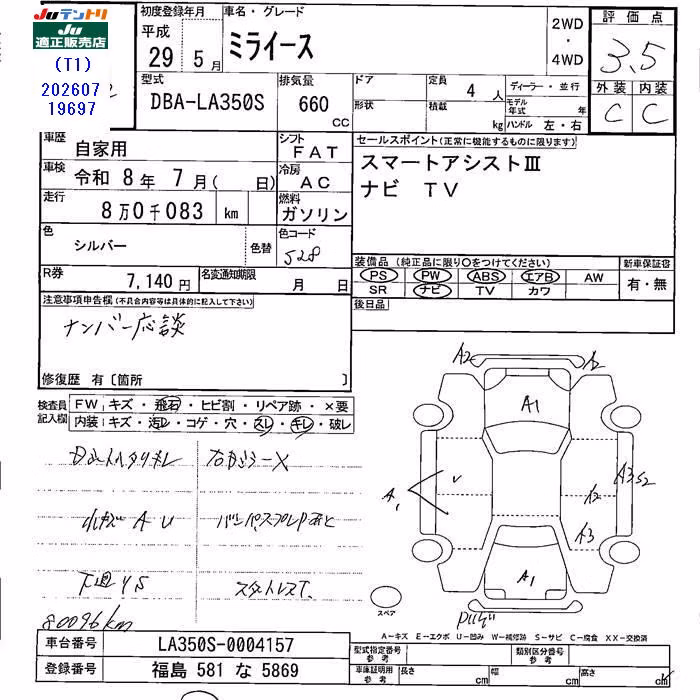 Juテントリ
JU
適正販売店
(T1)
202607
19697
初度登録年月
平成
29年 5月
車名・グレード
ミライース
2WD
・
4WD
評価点
3.5
外装 内装
C C
型式
DBA-LA350S
排気量
660
CC
ドア
形状
定員 4 人
積載 kg
ディーラー・並行
モデル年式 年
ハンドル 左・右
車歴
自家用
シフト
FAT
車検
令和 8年 7月( 日)
冷房
AC
走行
8万0千083 km
燃料
ガソリン
色
シルバー
色替
色コード
S28
R券
7,140 円
名変通知期限
月 日
セールスポイント(正常に機能するものに限ります)
スマートアシストⅢ
ナビ TV
装備品 (純正品に限り○をつけてください)
PS PW ABS エアB AW
SR ナビ TV カワ
新車保証書
有・無
後日品
注意事項申告欄(不具合内容等は具体的に記入して下さい)
ナンバー応談
修復歴 有〔箇所 〕
検査員
記入欄
FW キズ・飛石・ヒビ割・リペア跡・×要
内装 キズ・汚レ・コゲ・穴・スレ・キレ・破レ
小キズ A U
下廻りS
スタットレスT.
80096km
A2 A2
A1
U
A1
A2
A3S2
A3
A1
スペア
A-キズ E-エクボ U-凹み W-補修跡 S-サビ C-腐食 XX-交換済
車台番号
LA350S-0004157
登録番号
福島 581 な 5869
型式指定番号
参考
類別区分番号
参考
車庫証明用
参考
長さ cm
幅 cm
高さ cm